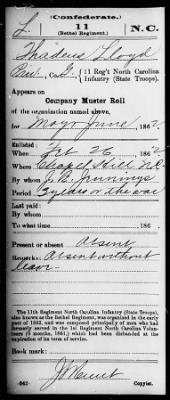 (Confederate.)
L 11 N.C.
(Bethel Regiment.)
Thaddeus Lloyd
Co. G, 11 Reg't North Carolina
Infantry (State Troops).
Appears on
Company Muster Roll
of the organization named above,
for May & June, 1862.
Enlisted:
When Feb 26, 1862
Where Chapel Hill N.C.
By whom J. R. Jennings
Period 3 years or the war
Last paid:
By whom
To what time , 186 .
Present or absent Absent
Remarks: Absent without
leave
The 11th Regiment North Carolina Infantry (State Troops),
also known as the Bethel Regiment, was organized in the early
part of 1862, and was composed principally of men who had
formerly served in the 1st Regiment North Carolina Volun-
teers (6 months, 1861,) which had been disbanded at the
expiration of its term of service.
Book mark:
(642) Copyist.